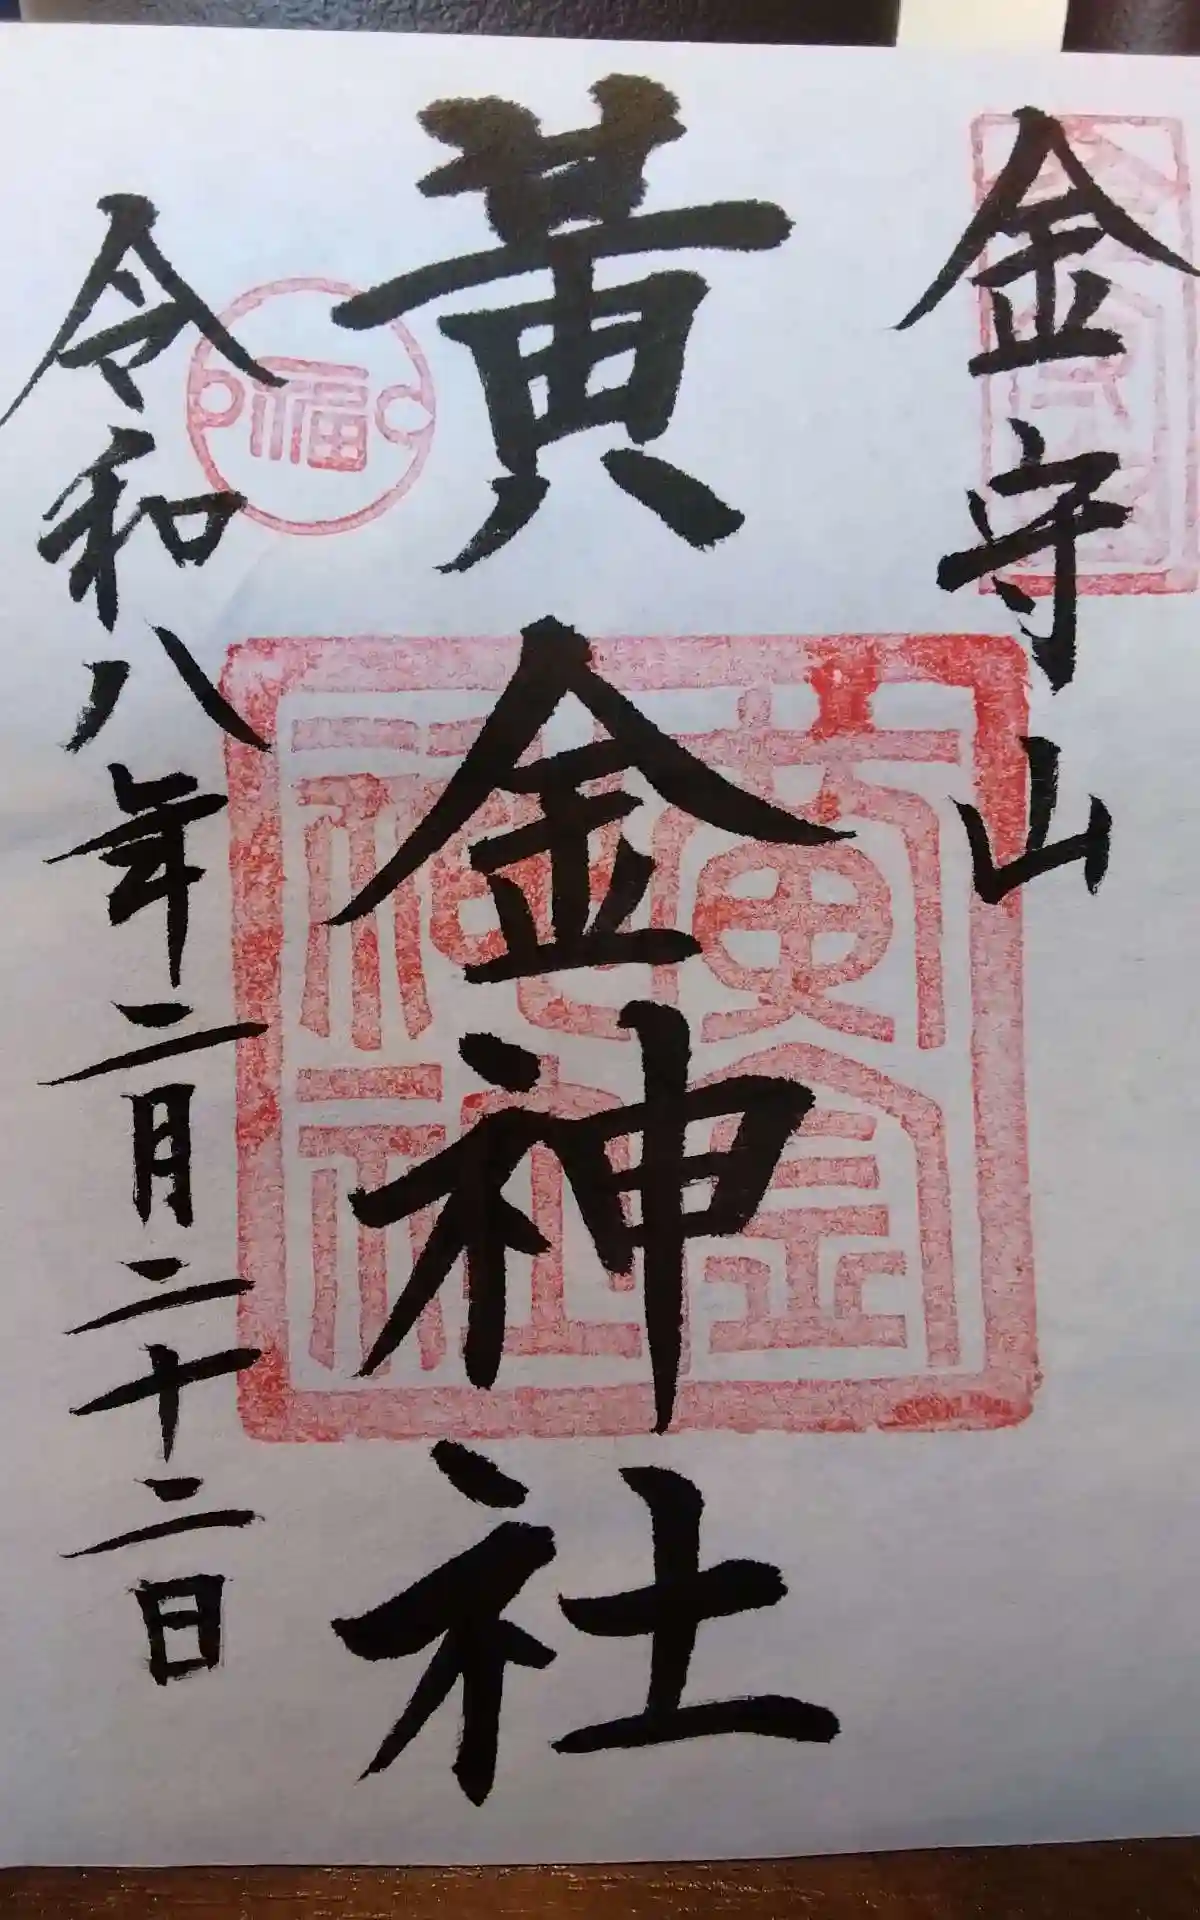 金守山
黄金神社
令和八年二月二十二日
福
黄金
神社